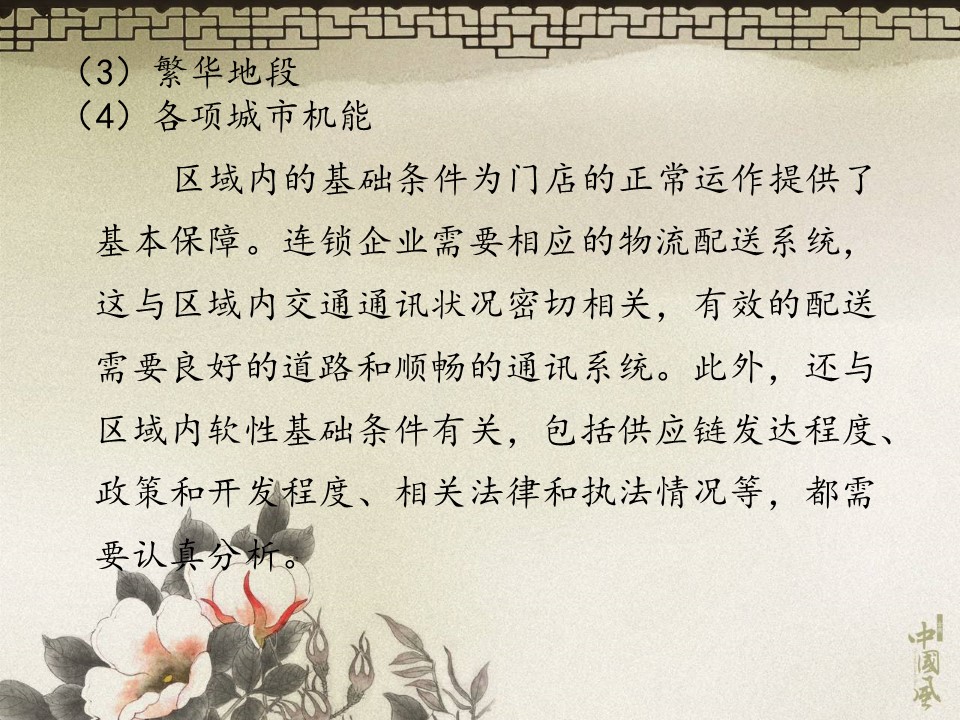 （3）繁华地段
（4）各项城市机能
区域内的基础条件为门店的正常运作提供了
基本保障。连锁企业需要相应的物流配送系统，
这与区域内交通通讯状况密切相关，有效的配送
需要良好的道路和顺畅的通讯系统。此外，还与
区域内软性基础条件有关，包括供应链发达程度、
政策和开发程度、相关法律和执法情况等，都需
要认真分析。
中國风